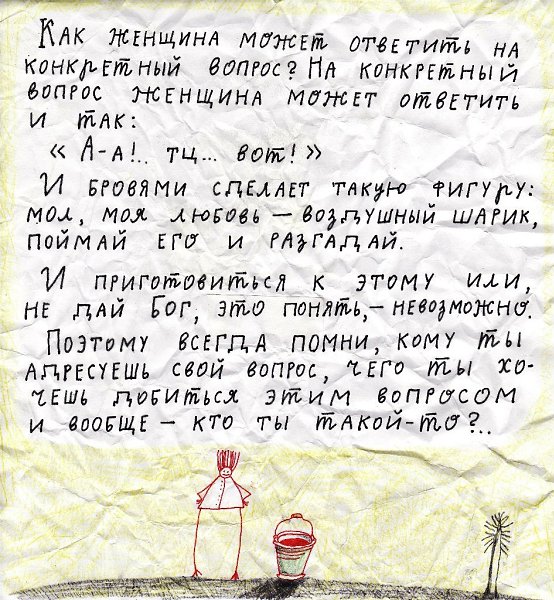 Как женщина может ответить на
конкретный вопрос? На конкретный
вопрос женщина может ответить
и так:
« А-а!.. тц... вот! »
И бровями сделает такую фигуру:
мол, моя любовь – воздушный шарик,
поймай его и разгадай.
И приготовиться к этому или,
не дай Бог, это понять, – невозможно.
Поэтому всегда помни, кому ты
адресуешь свой вопрос, чего ты хо-
чешь добиться этим вопросом
и вообще – кто ты такой-то?..